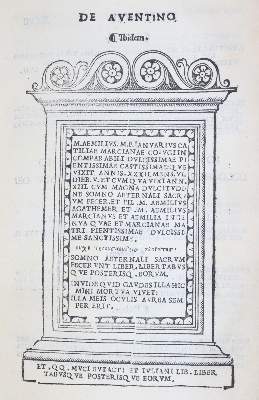 DE AVENTINO.
Ibidem.
M. AEMILIVS. M. F. IANVARIVS CA
TILIAE MARCIANAE CO·VGI IN
COMPARABILI DVLCISSIMAE PI
ENTISSIMAE CASTISSIMAEQ V
VIXIT ANNIS XXXII MENS. VI
DIEB. V. ET CVM QVA VIXI ANN.
XIII. CVM MAGNA DVLCITVDI
NE SOMNO AETERNALI SACR
VM FECER. ET FIL. M. AEMILIVS
AGATHEMER ET M. AEMILIVS
MARCIANVS ET AEMILIA
MARCIANAE MA
TRI PIENTISSIMAE DVLCISSI
ME SANCTISSIM
SOMNO AETERNALI SACRVM
FECERVNT LIBER. LIBERTABVS
QVE POSTERISQ. EORVM.
INVIDE QVID GAVDES ILLA HIC
MIHI MORTVA VIVET.
ILLA MEIS OCVLIS AVREA SEM
PER ERIT.
ET. QQ. MVCI EVFACTI ET IVLIANI LIB. LIBER
TABVSQVE POSTERISQVE EORVM.